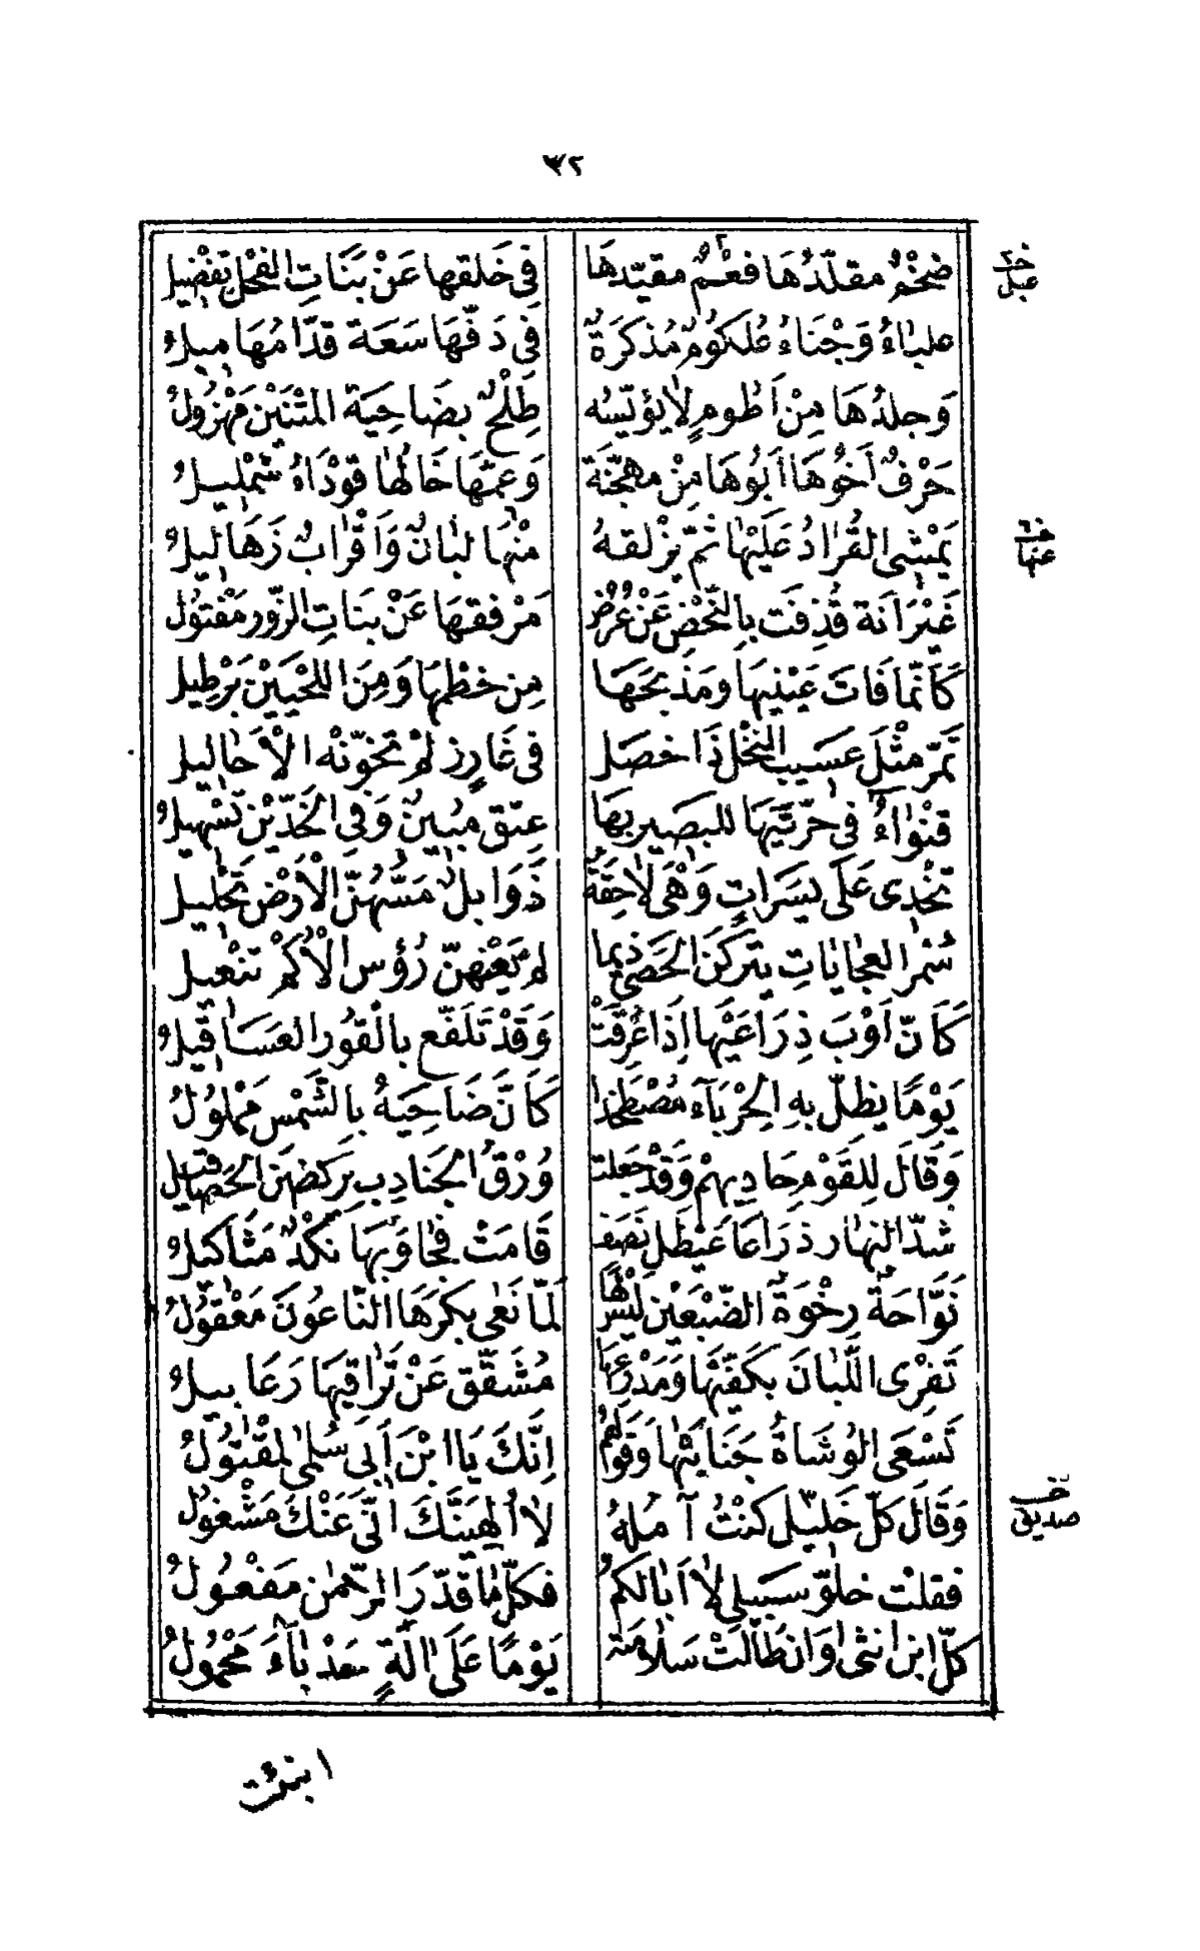 ٣٢
ضَخْمٌ مقلّدُهَا فَعْمٌ مقيّدهَا فِى خَلقهَا عَنْ بَنَاتِ الفَحْلِ تَفْضِيلُ
علبَاءُ وَجْنَاءُ عُلكومٌ مُذكرَةٌ فِى دَفّهَا سَعَة قدّامُهَا مِيلُ
وَجلدُهَا مِنْ اَطُومٍ لَا يؤيّسُه طِلْحٌ بضَاحِيَة المَتْنَيْنِ مَهْزُولُ
حَرْفٌ اَخُوهَا اَبُوهَا مِنْ مهجّنَة وَعمّهَا خَالُهَا قوْدَاءُ شِمْلِيلُ
يَمْشِى القُرَادُ عَلَيْهَا ثمّ يزْلقهُ مِنْهَا لبَانٌ وَاَقْرَابٌ زَهَالِيلُ
عَيْرَانَة قُذِفَت بِالنَّحْضِ عَنْ عُرُضٍ مَرْفقهَا عَنْ بنَاتِ الزّور مَفْتُولُ
كَاَنّمَا فَاتَ عَيْنيهَا ومَذبحَهَا مِن خَطْمِهَا وَمِنَ اللّحْيَيْن بَرْطِيلُ
تَمرّ مثْلَ عَسيبِ النّخْلِ ذَا خصَل فى غَارِزٍ لَمْ تخوّنْه الْاَحَالِيلُ
قنْوَاءُ فى حُرّتَيْهَا للبَصِير بهَا عِتق مُبِينٌ وَفِى الخَدّيْن تَسْهِيلُ
تَخْدِى عَلَى يَسَرَاتٍ وَهْى لَاحِقَةٌ ذَوَابلٌ مَسّهُنّ الْاَرْض تَحْلِيلُ
سُمْر العُجَايَاتِ يَتركنَ الحَصَى زيما لَم يَقِهنّ رُؤس الْاُكْم تنْعِيل
كَاَنّ اَوْبَ ذِرَاعَيْهَا اِذَا عَرِقَتْ وَقَدْ تَلَفّع بالقُور العَسَاقِيلُ
يَوْمًا يظلّ بهِ الحِرْبَاء مُصْطَخِدًا كَاَنَّ ضَاحِيَهُ بِالشَّمْسِ مَمْلُولُ
وَقَالَ لِلقَوْم حَادِيهمْ وَقَدْ جَعَلت وُرْقُ الجَنَادِبِ يَركضْنَ الحَصَا قِيل
شدّ النهَار ذرَاعَا عَيْطَلٍ نَصَف قَامَتْ فجَاوَبهَا نُكْدٌ مَثَاكِيلُ
نَوَّاحَةٌ رِخْوَة الضّبْعَيْن لَيْسَ لَهَا لَمّا نَعٰى بكرَهَا النّاعُونَ مَعْقُولُ
تَفرِى اللّبَانَ بكَفّيْهَا وَمَدْرعهَا مُشَقَّق عَنْ تَرَاقِيهَا رَعَابيلُ
تَسْعَى الوُشَاةُ جَنَابَيْهَا وَقَوْلُهُمُ اِنَّكَ يَا ابْنَ اَبِى سُلمٰى لمَقْتُولُ
وَقَالَ كلّ خَلِيلٍ كنْتُ آمُلهُ لَا اُلهِيَنَّكَ اِنّى عَنْكَ مَشْغُولُ
فقلتْ خلّو سَبيلى لَا اَبَالكمُ فكلّ مَا قَدّرَ الرّحْمٰن مَفْعُولُ
كلّ ابن انثٰى وَان طَالَتْ سَلَامَته يَوْمًا عَلٰى آلةٍ حَدْبَاءَ مَحْمُولُ
خد
عبل
عنها
صديق